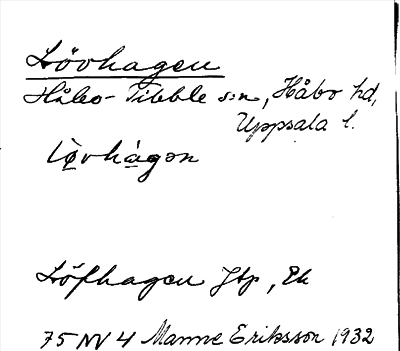 Lövhagen
Håbo-Tibble s:n, Håbo hd,
Uppsala l.
Löfhagen Jtp, Ek
75 NV 4 Manne Eriksson 1932